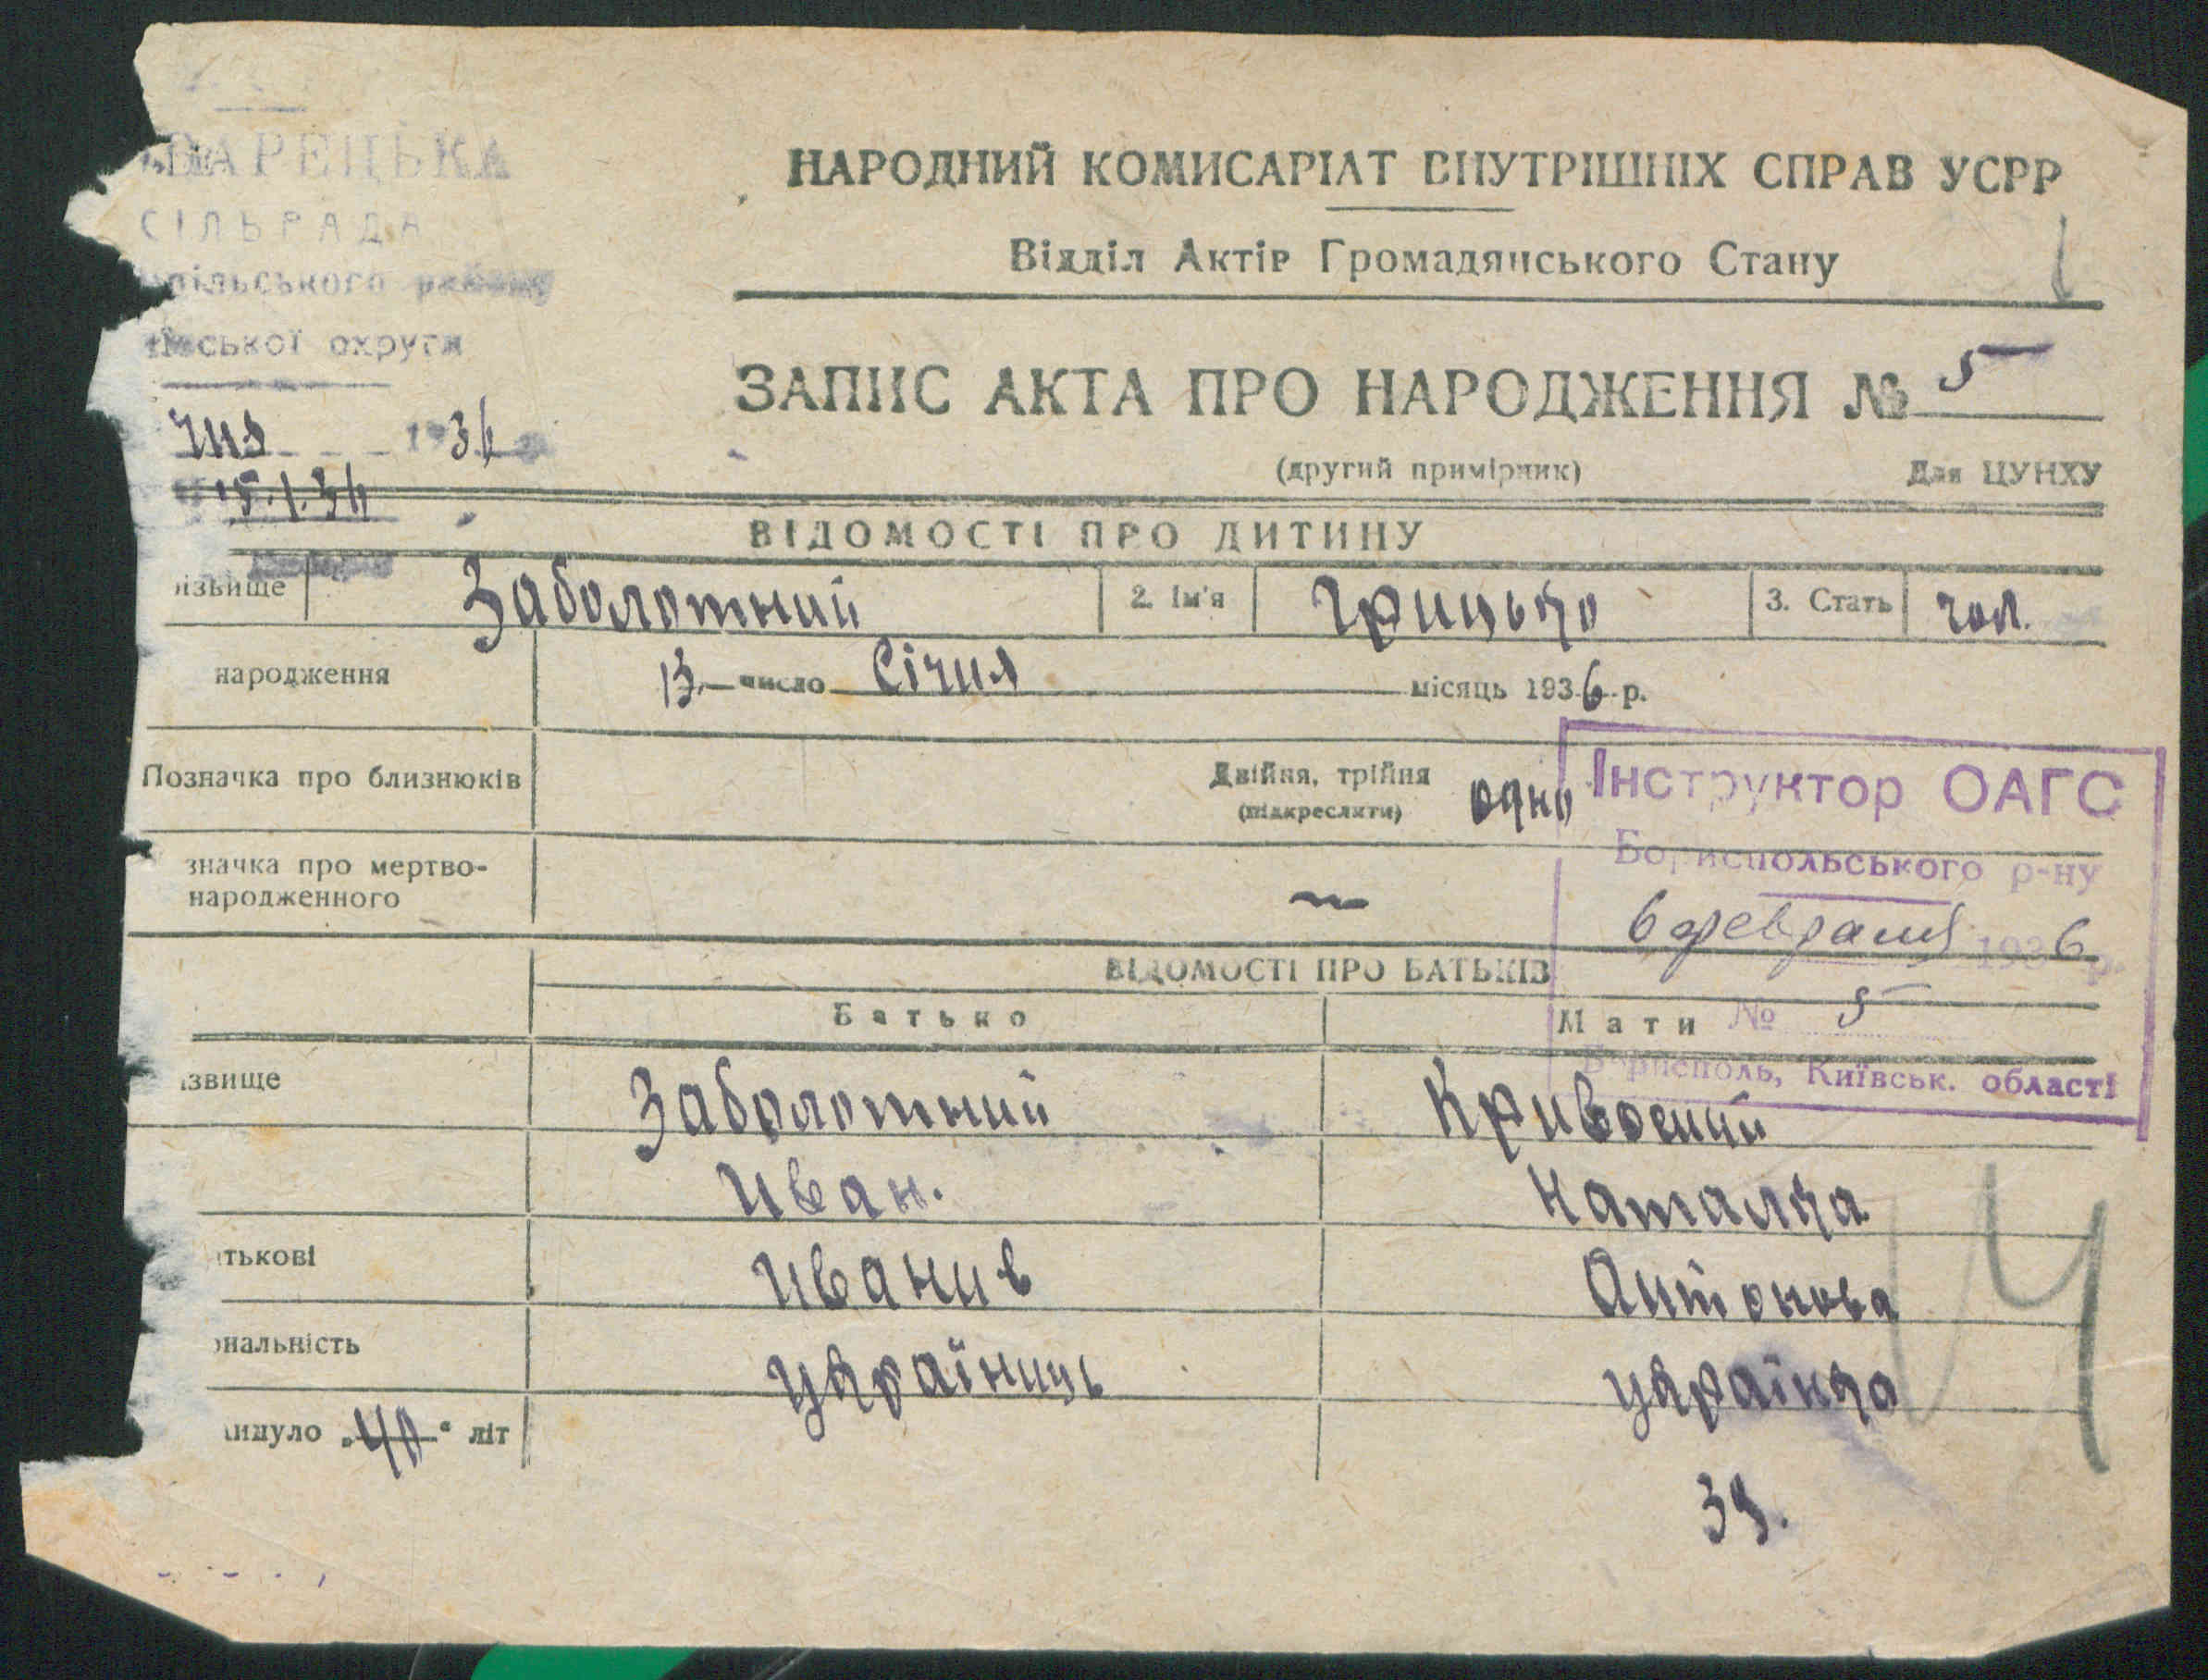 АРЕЦЬКА
СІЛЬРАДА
пільського району
ської округи
чня 1936
15.1.36
НАРОДНИЙ КОМИСАРІАТ ВНУТРІШНІХ СПРАВ УСРР
Відділ Актів Громадянського Стану
ЗАПИС АКТА ПРО НАРОДЖЕННЯ № 5
(другий примірник) Для ЦУНХУ
ВІДОМОСТІ ПРО ДИТИНУ
ізвище Заболотний 2. Ім'я Грицько 3. Стать чол.
народження 13 число Січня місяць 1936 р.
Позначка про близнюків Двійня, трійня одно
(підкреслити)
значка про мертво-
народженного —
Інструктор ОАГС
Бориспольського р-ну
6 февраля 1936 р.
№ 5
Борисполь, Київськ. області
ВІДОМОСТІ ПРО БАТЬКІВ
Батько Мати
ізвище Заболотний
Иван. Наталка
тькові Иванив Антонова
ональність українць українка
инуло „40“ літ
39.